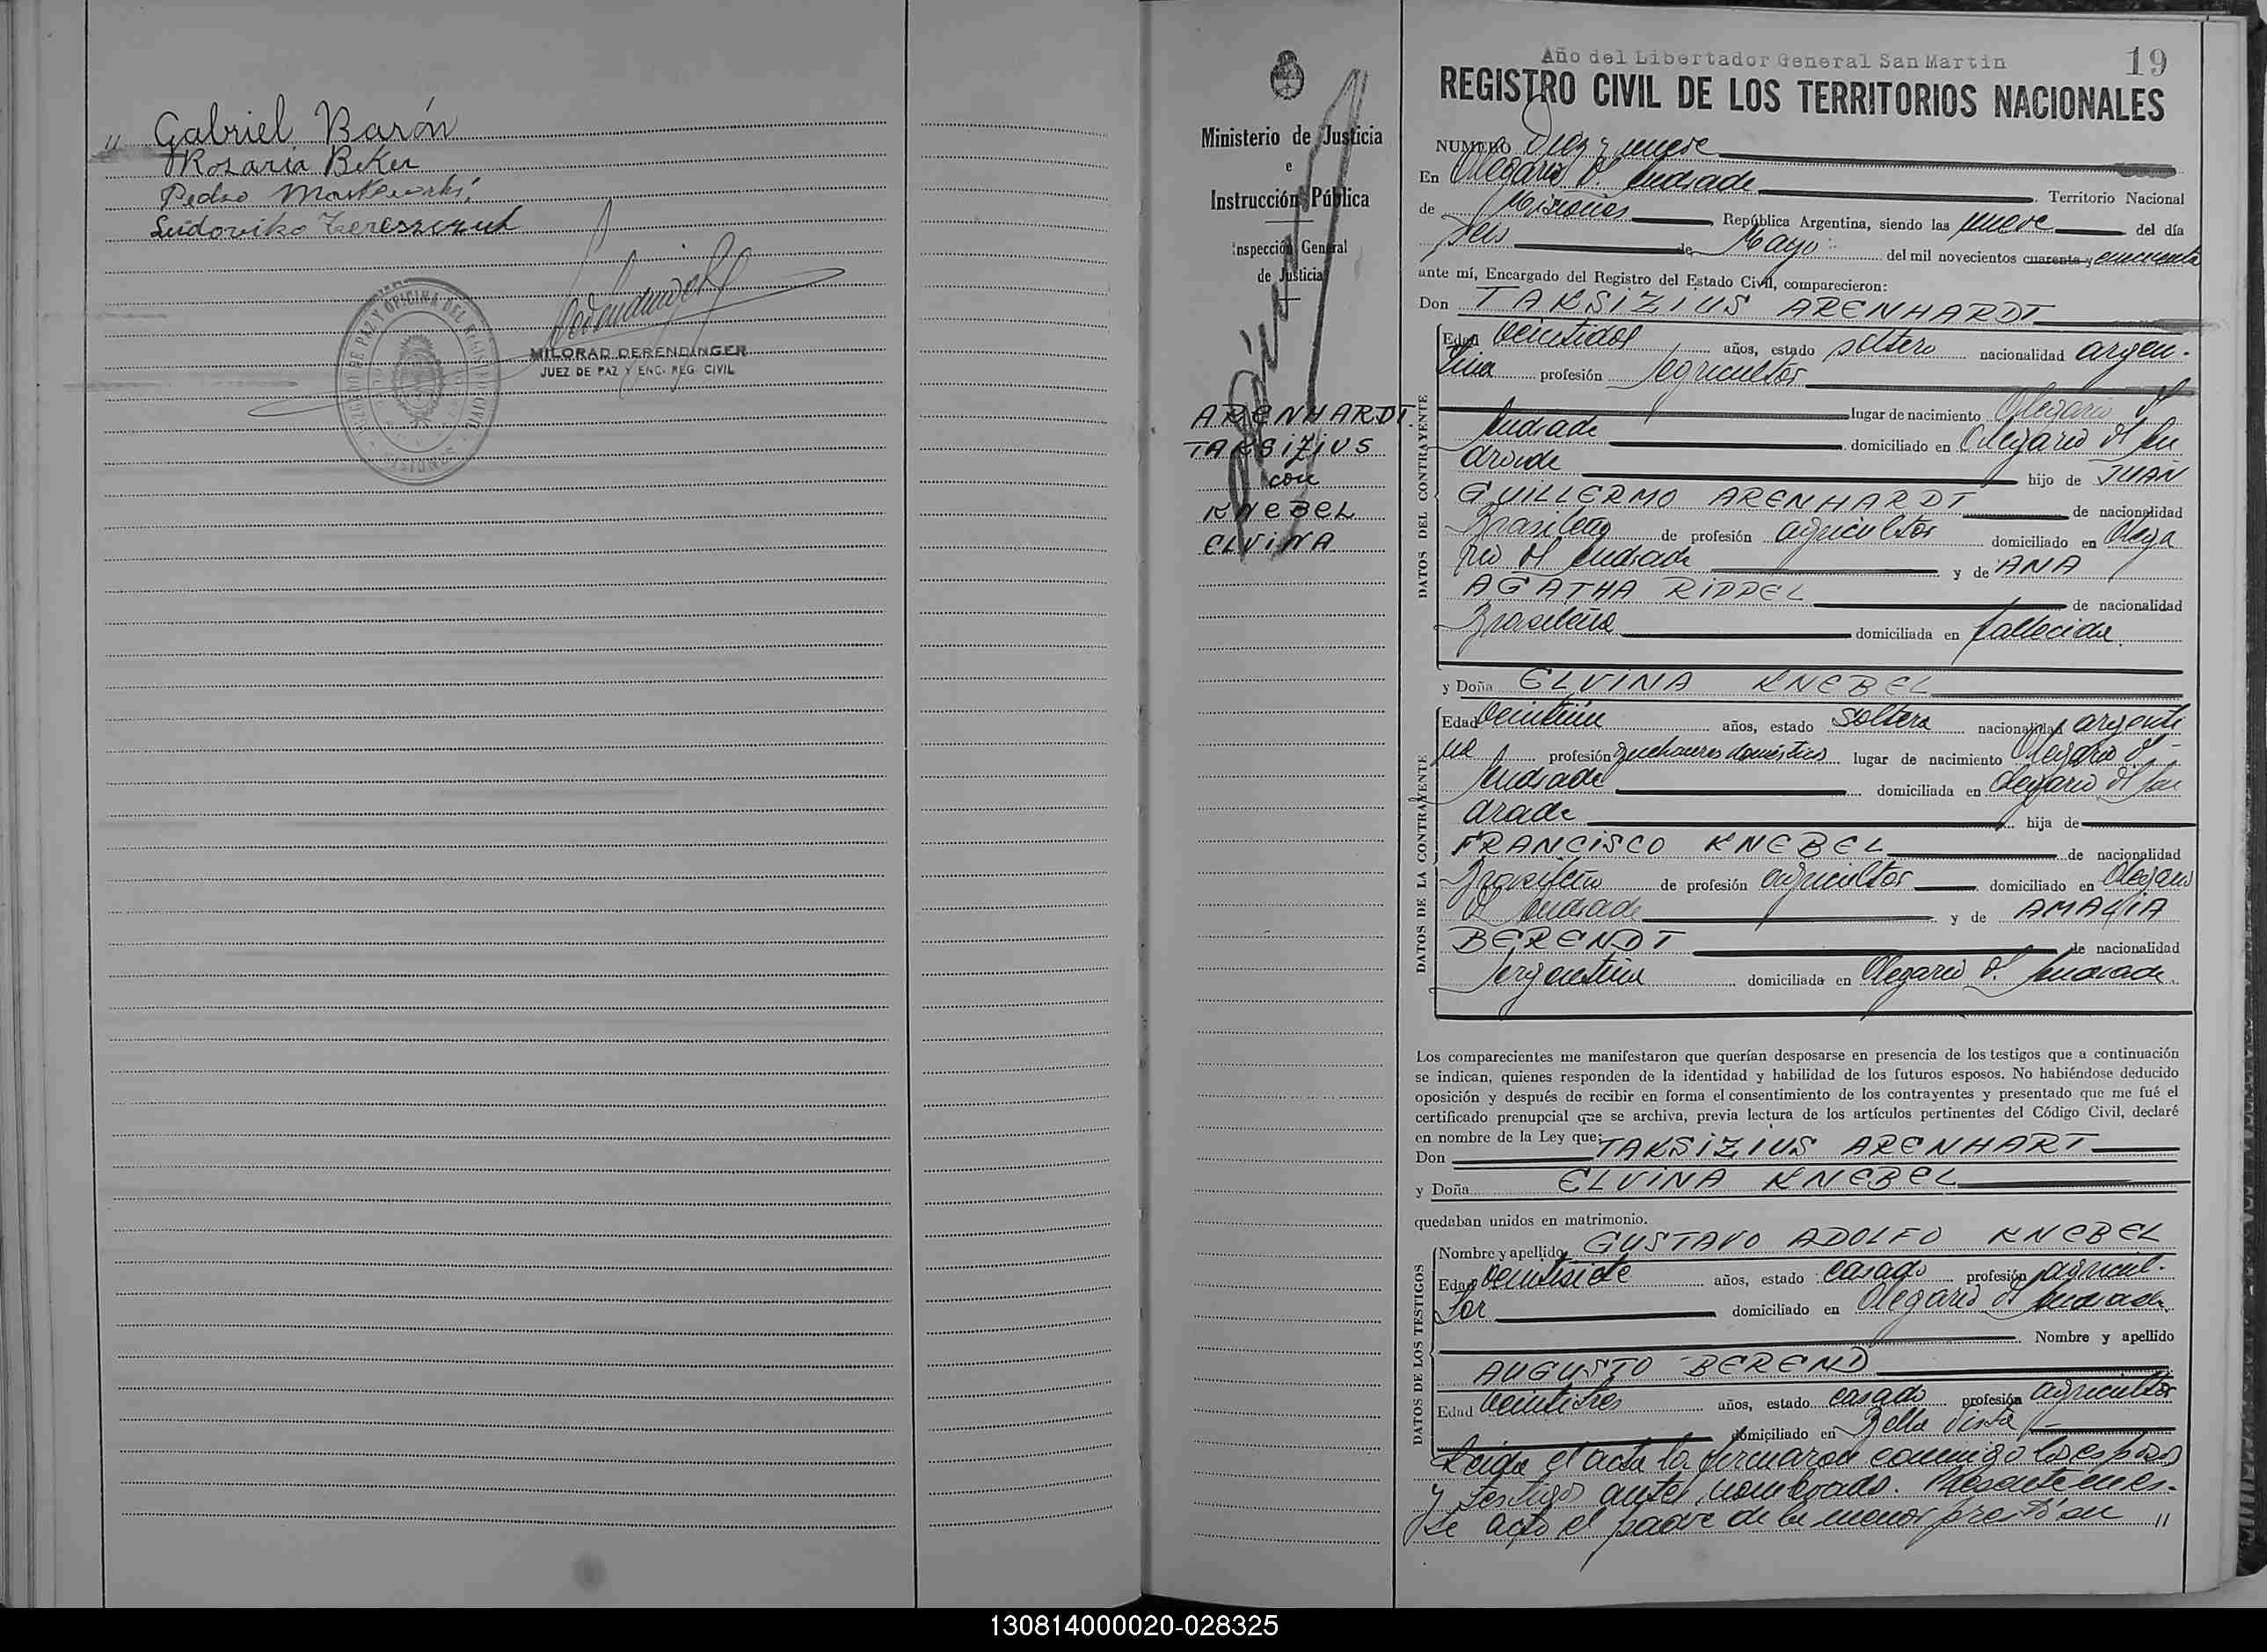 " Gabriel Barón
Rosaria Beker
Pedro Maskewski
Ludoviko Tereszczuk
JUZGADO DE PAZ Y OFICINA DEL REGISTRO CIVIL
MISIONES
MILORAD DERENDINGER
JUEZ DE PAZ Y ENC. REG. CIVIL
Ministerio de Justicia
e
Instrucción Pública
Inspección General
de Justicia
ARENHARDT
TARSIZIUS
con
KNEBEL
ELVINA
Año del Libertador General San Martin
19
REGISTRO CIVIL DE LOS TERRITORIOS NACIONALES
NUMERO Diez y nueve
En Olegario V. Andrade . Territorio Nacional
de Misiones , República Argentina, siendo las nueve del día
seis de Mayo del mil novecientos cuarenta y cincuenta
ante mí, Encargado del Registro del Estado Civil, comparecieron:
Don TARSIZIUS ARENHARDT
DATOS DEL CONTRAYENTE
Edad veintidos años, estado soltero nacionalidad argen-
tina profesión agricultor
lugar de nacimiento Olegario V
Andrade domiciliado en Olegario V An
drade hijo de JUAN
GUILLERMO ARENHARDT de nacionalidad
Brasileño de profesión agricultor domiciliado en Olega
rio V Andrade y de ANA
AGATHA RIPPEL de nacionalidad
Brasileña domiciliada en fallecida
y Doña ELVINA KNEBEL
DATOS DE LA CONTRAYENTE
Edad veintiún años, estado soltera nacionalidad argenti
na profesión quehaceres domésticos lugar de nacimiento Olegario V.
Andrade domiciliada en Olegario V An
drade hija de
FRANCISCO KNEBEL de nacionalidad
Brasileño de profesión agricultor domiciliado en Olegario
V Andrade y de AMALIA
BERENDT de nacionalidad
Argentina domiciliada en Olegario V. Andrade.
Los comparecientes me manifestaron que querían desposarse en presencia de los testigos que a continuación
se indican, quienes responden de la identidad y habilidad de los futuros esposos. No habiéndose deducido
oposición y después de recibir en forma el consentimiento de los contrayentes y presentado que me fué el
certificado prenupcial que se archiva, previa lectura de los artículos pertinentes del Código Civil, declaré
en nombre de la Ley que:
Don TARSIZIUS ARENHART
y Doña ELVINA KNEBEL
quedaban unidos en matrimonio.
DATOS DE LOS TESTIGOS
Nombre y apellido GUSTAVO ADOLFO KNEBEL
Edad veintisiete años, estado casado profesión agricul-
tor domiciliado en Olegario V Andrade
Nombre y apellido
AUGUSTO BEREND
Edad veintitres años, estado casado profesión agricultor
domiciliado en Bella Vista
Leída el acta la firmaron conmigo los esposos
y testigos antes nombrados. Presente en es-
te acto el padre de la menor prestó su "
130814000020-028325